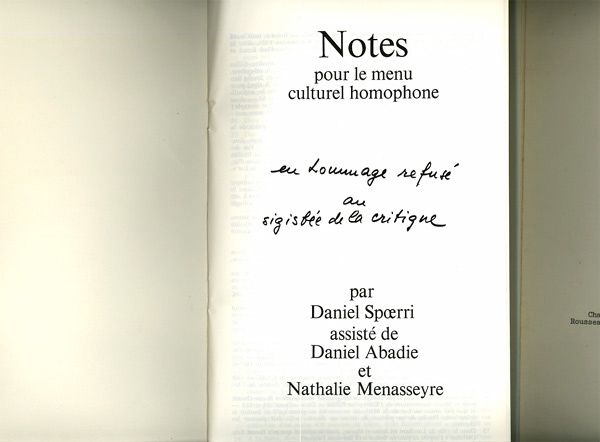 Notes
pour le menu
culturel homophone
en hommage refusé
au
sigisbée de la critique
par
Daniel Spœrri
assisté de
Daniel Abadie
et
Nathalie Menasseyre
Cha
Roussea